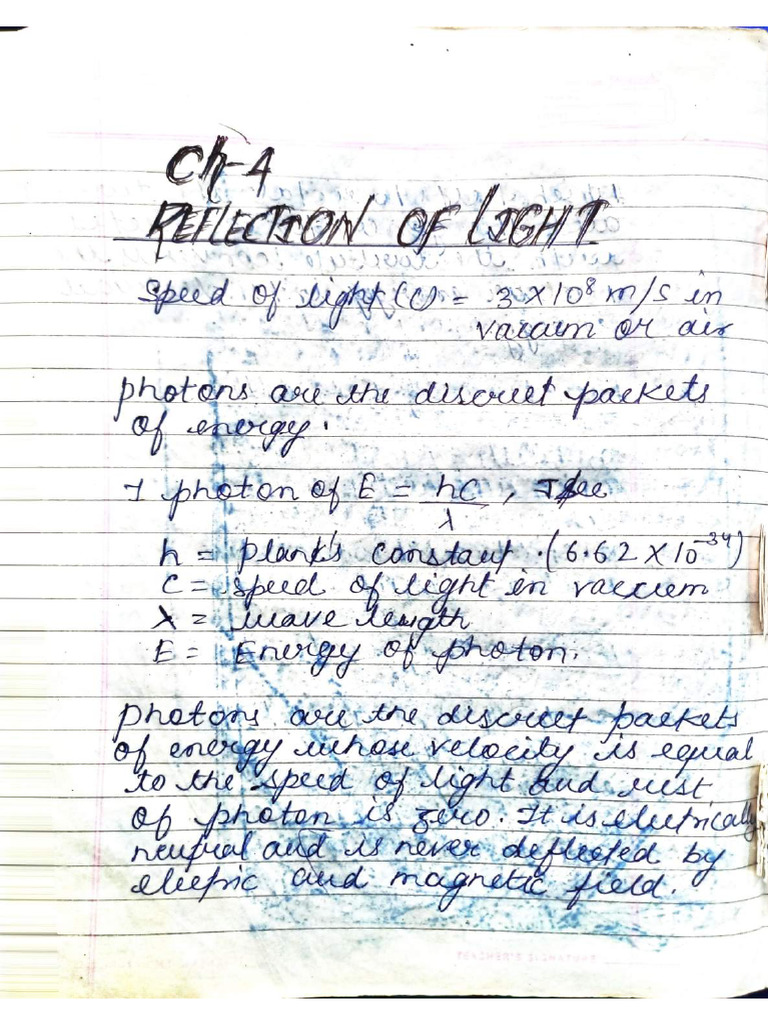 Ch-4
REFLECTION OF LIGHT
Speed of light (C) = 3 × 10⁸ m/s in
vacuum or air
photons are the discreet packets
of energy.
1 photon of E = hC/λ,
h = plank's constant. (6.62 × 10⁻³⁴)
C = speed of light in vaccum
λ = wave length
E = Energy of photon.
photons are the discreet packets
of energy whose velocity is equal
to the speed of light and rest
of photon is zero. It is electrically
neutral and is never deflected by
electric and magnetic field.